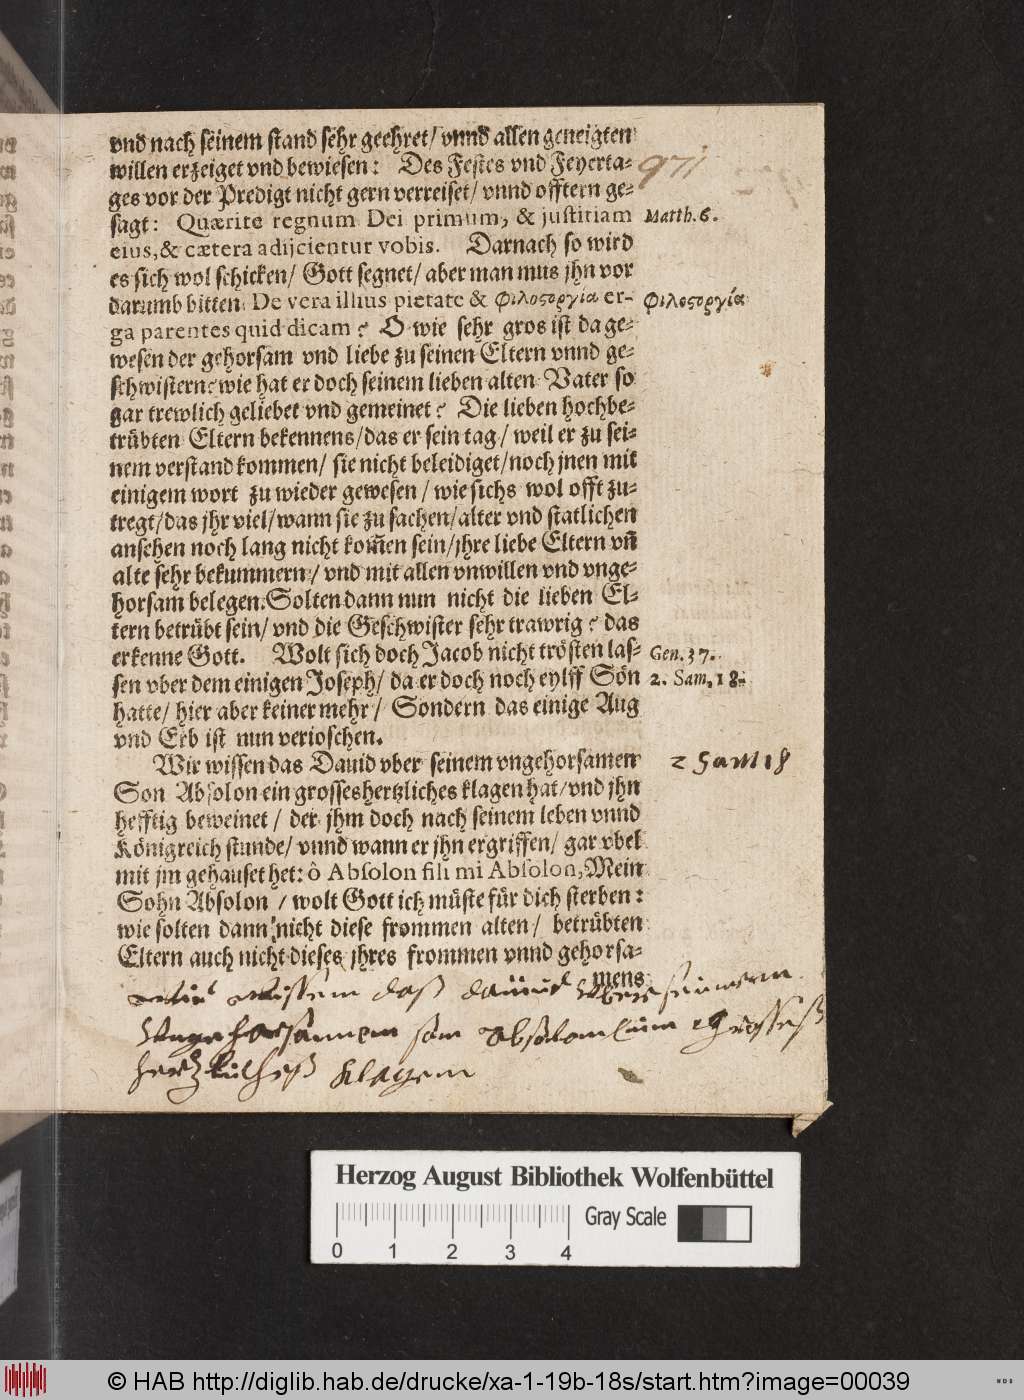 vnd nach seinem stand sehr geehret/ vnnd allen geneigten
willen erzeiget vnd bewiesen: Des Festes vnd Feyerta-
ges vor der Predigt nicht gern verreiset/ vnnd offtern ge-
sagt: Quærite regnum Dei primum, & justitiam
Matth. 6.
eius, & cætera adijcientur vobis. Darnach so wird
es sich wol schicken/ Gott segnet/ aber man mus jhn vor
darumb bitten. De vera illius pietate & φιλοςοργία er-
φιλοςοργία
ga parentes quid dicam? O wie sehr gros ist da ge-
wesen der gehorsam vnd liebe zu seinen Eltern vnnd ge-
schwistern? wie hat er doch seinem lieben alten Vater so
gar trewlich geliebet vnd gemeinet? Die lieben hochbe-
trübten Eltern bekennens/ das er sein tag/ weil er zu sei-
nem verstand kommen/ sie nicht beleidiget/ noch jnen mit
einigem wort zu wieder gewesen/ wie sichs wol offt zu-
tregt/ das jhr viel/ wann sie zu sachen/ alter vnd statlichen
ansehen noch lang nicht kom̃en sein/ jhre liebe Eltern vñ
alte sehr bekummern/ vnd mit allen vnwillen vnd vnge-
horsam belegen. Solten dann nun nicht die lieben El-
tern betrübt sein/ vnd die Geschwister sehr trawrig? das
erkenne Gott. Wolt sich doch Jacob nicht trösten las-
Gen. 37.
sen vber dem einigen Joseph/ da er doch noch eylff Sön
2. Sam. 18.
hatte/ hier aber keiner mehr/ Sondern das einige Aug
vnd Erb ist nun verloschen.
Wir wissen das Dauid vber seinem vngehorsamen
2 Sam 18
Son Absolon ein grosses hertzliches klagen hat/ vnd jhn
hefftig beweinet/ der jhm doch nach seinem leben vnnd
Königreich stunde/ vnnd wann er jhn ergriffen/ gar vbel
mit jm gehauset het: ô Absolon fili mi Absolon, Mein
Sohn Absolon/ wolt Gott ich müste für dich sterben:
wie solten dann nicht diese frommen alten/ betrübten
Eltern auch nicht dieses jhres frommen vnnd gehorsa-
mens
wissem daß dauiid vber seinem
Vngehorsamem son absolom eim grosseß
hertzliicheß klagem
Herzog August Bibliothek Wolfenbüttel
Gray Scale
0 1 2 3 4
© HAB http://diglib.hab.de/drucke/xa-1-19b-18s/start.htm?image=00039